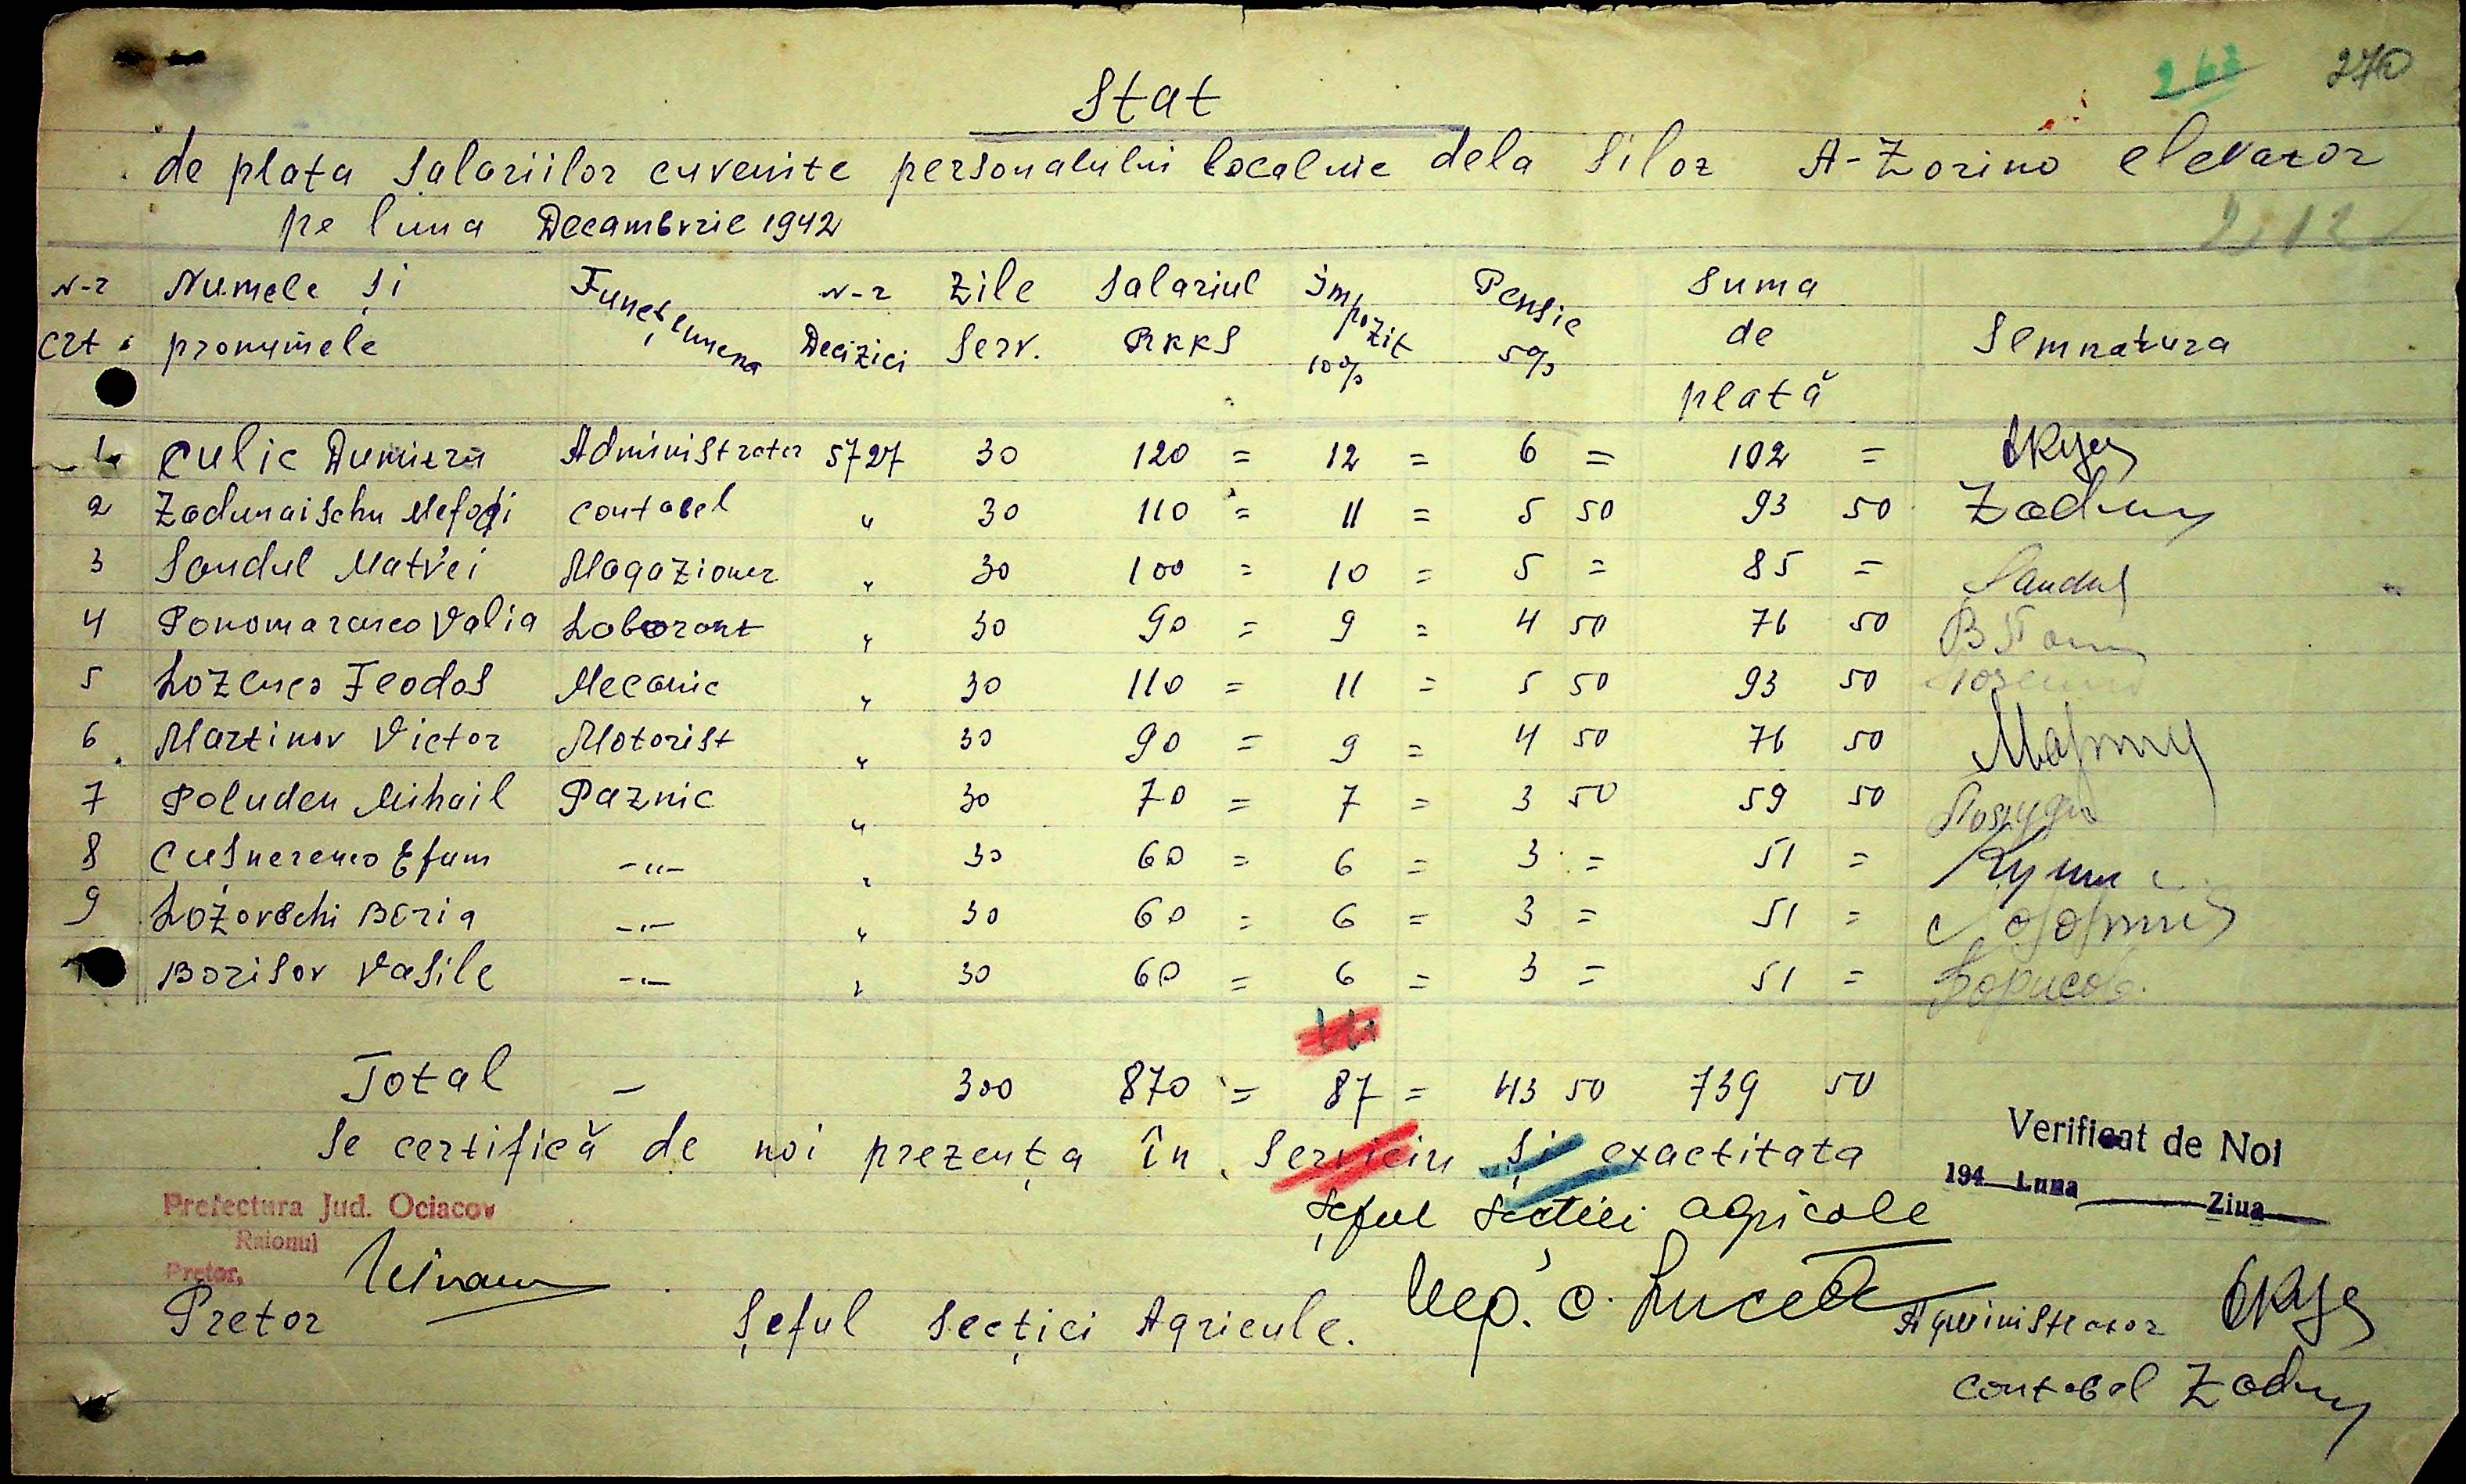 263 270
Stat
de plata salariilor cuvenite personalului localnic dela Siloz A-Zorino elevator
pe luna Decambrie 1942
N-r Numele și Funcțiunena N-r Zile Salariul Impozit Pensie Suma
crt. pronumele Decizici Serv. RKKS 10% 5% de Semnatura
plată
1 Culic Dumitru Administrator 5727 30 120 = 12 = 6 = 102 =
2 Zadunaischu Mefodi contabel " 30 110 = 11 = 5 50 93 50 Zadun
3 Sandul Matvei Magazioner " 30 100 = 10 = 5 = 85 = Sandul
4 Ponomarenco Valia Laborant " 30 90 = 9 = 4 50 76 50
5 Lozenco Feodos Mecanic " 30 110 = 11 = 5 50 93 50
6 Martinov Victor Motorist " 30 90 = 9 = 4 50 76 50
7 Poluden Mihail Paznic " 30 70 = 7 = 3 50 59 50
8 Cusnerenco Efum -"- " 30 60 = 6 = 3 = 51 =
9 Lozovschi Boria -"- " 30 60 = 6 = 3 = 51 =
Borisov Vasile -"- " 30 60 = 6 = 3 = 51 = Борисов
Total - 300 870 = 87 = 43 50 739 50
Se certifică de noi prezența în serviciu și exactitata
Verificat de Noi
194 Luna Ziua
Prefectura Jud. Ociacov
Raionul
Pretor,
Șeful Secției agricole
Pretor Șeful Secției Agricule. Administrator
contabel Zadun